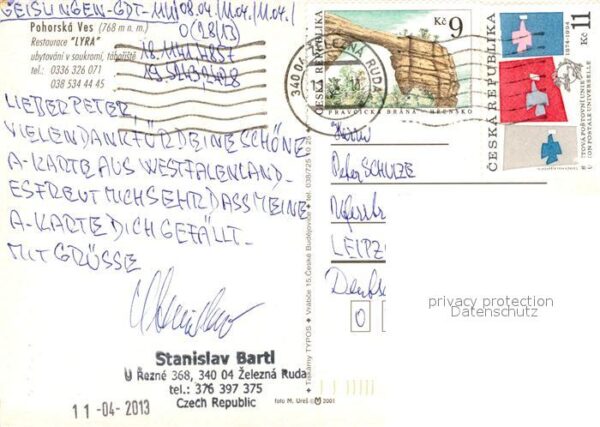 GEISLINGEN-GDT-
Pohorská Ves (768 m n. m.)
Restaurace "LYRA"
ubytování v soukromí, tábořiště
tel.: 0336 326 071
038 534 44 45
LIEBER PETER,
VIELEN DANK FÜR DEINE SCHÖNE
A-KARTE AUS WESTFALENLAND.
ES FREUT MICH SEHR DASS MEINE
A-KARTE DICH GEFÄLLT.
MIT GRÜSSE
Stanislav Bartl
U Řezné 368, 340 04 Železná Ruda
tel.: 376 397 375
Czech Republic
11-04-2013
Tiskárny TYPOS ✦ Vrábče 15, České Budějovice ✦ tel.: 038/725
foto M. Ureš © 2001
340 04 ŽELEZNÁ RUDA
Kč 9
ČESKÁ REPUBLIKA
PRAVČICKÁ BRÁNA - HŘENSKO
Kč 11
1874-1994
ČESKÁ REPUBLIKA
SVĚTOVÁ POŠTOVNÍ UNIE
UNION POSTALE UNIVERSELLE
Herrn
Peter SCHULZE
LEIPZ
Deutsc
privacy protection
Datenschutz